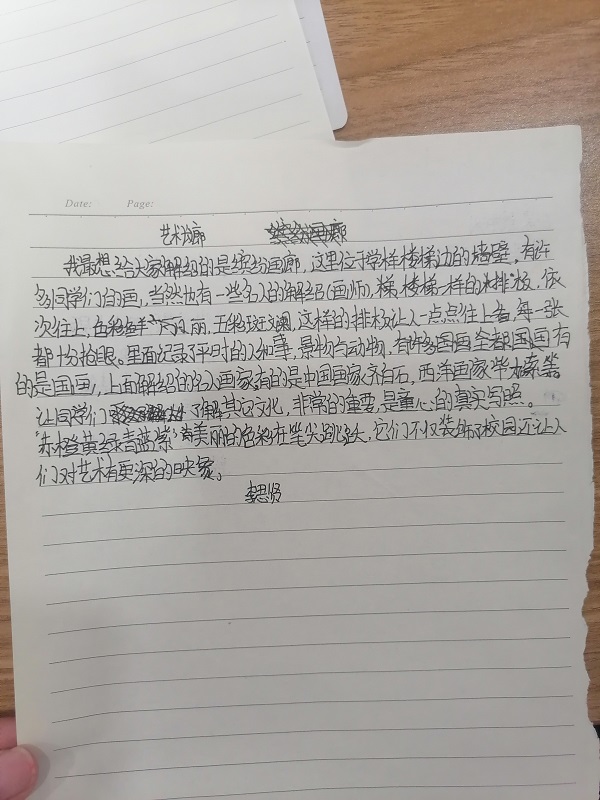 Date: Page:
艺术长廊
我最想给大家解绍的是缤纷画廊，这里位于学样楼梯边的墙壁，有许
多同学们的画，当然也有一些名人的解绍(画师)，梯，楼梯一样的排版，依
次往上，色彩鲜艳亮丽，五彩斑斓，这样的排板让人一点点往上看，每一张
都十分抢眼。里面纪录了平时的人和事，景物与动物，有许多国画
的是国画，上面解绍的名人画家有的是中国画家齐白石，西洋画家毕加索等
让同学们了解其这文化，非常的重要，是童心的真实写照。
“赤橙黄绿青蓝紫”美丽的色彩在笔尖跳跃，它们不仅装饰了校园还让人
们对艺术有更深的映象。
李思贤